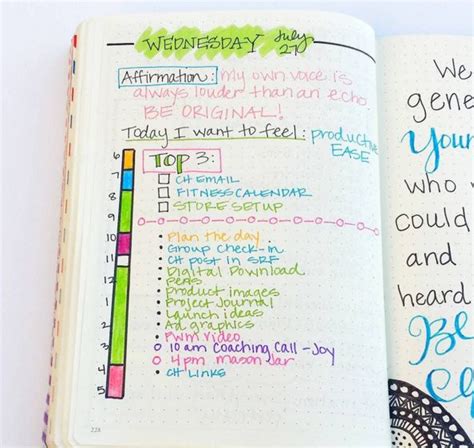 WEDNESDAY July 27
Affirmation: My own voice is
always louder than an echo.
BE ORIGINAL!
Today I want to feel: productive
EASE
TOP 3:
CH EMAIL
FITNESS CALENDAR
STORE SETUP
Plan the day
Group check-in
CH post in SRF
Digital Download
PEAS
Product images
Project Journal
Launch ideas
Ad graphics
PWM video
10 am Coaching Call - Joy
4 pm mason jar
CH LINKS
6
7
8
9
10
11
12
1
2
3
4
5
228
We
gene
Your
who
could
and
heard
Be